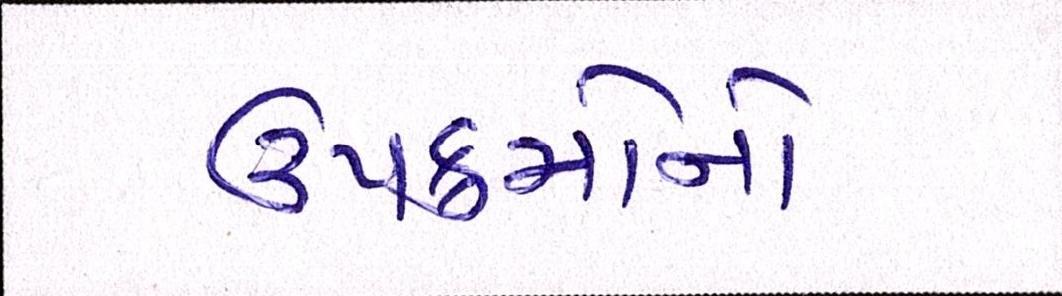 ઉપક્રમોનો